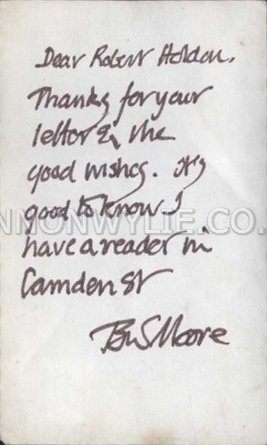 Dear Robert Holden.
Thanks for your
letter & the
good wishes. It's
good to know I
NNONWYLIE.CO.
have a reader in
Camden St
Moore